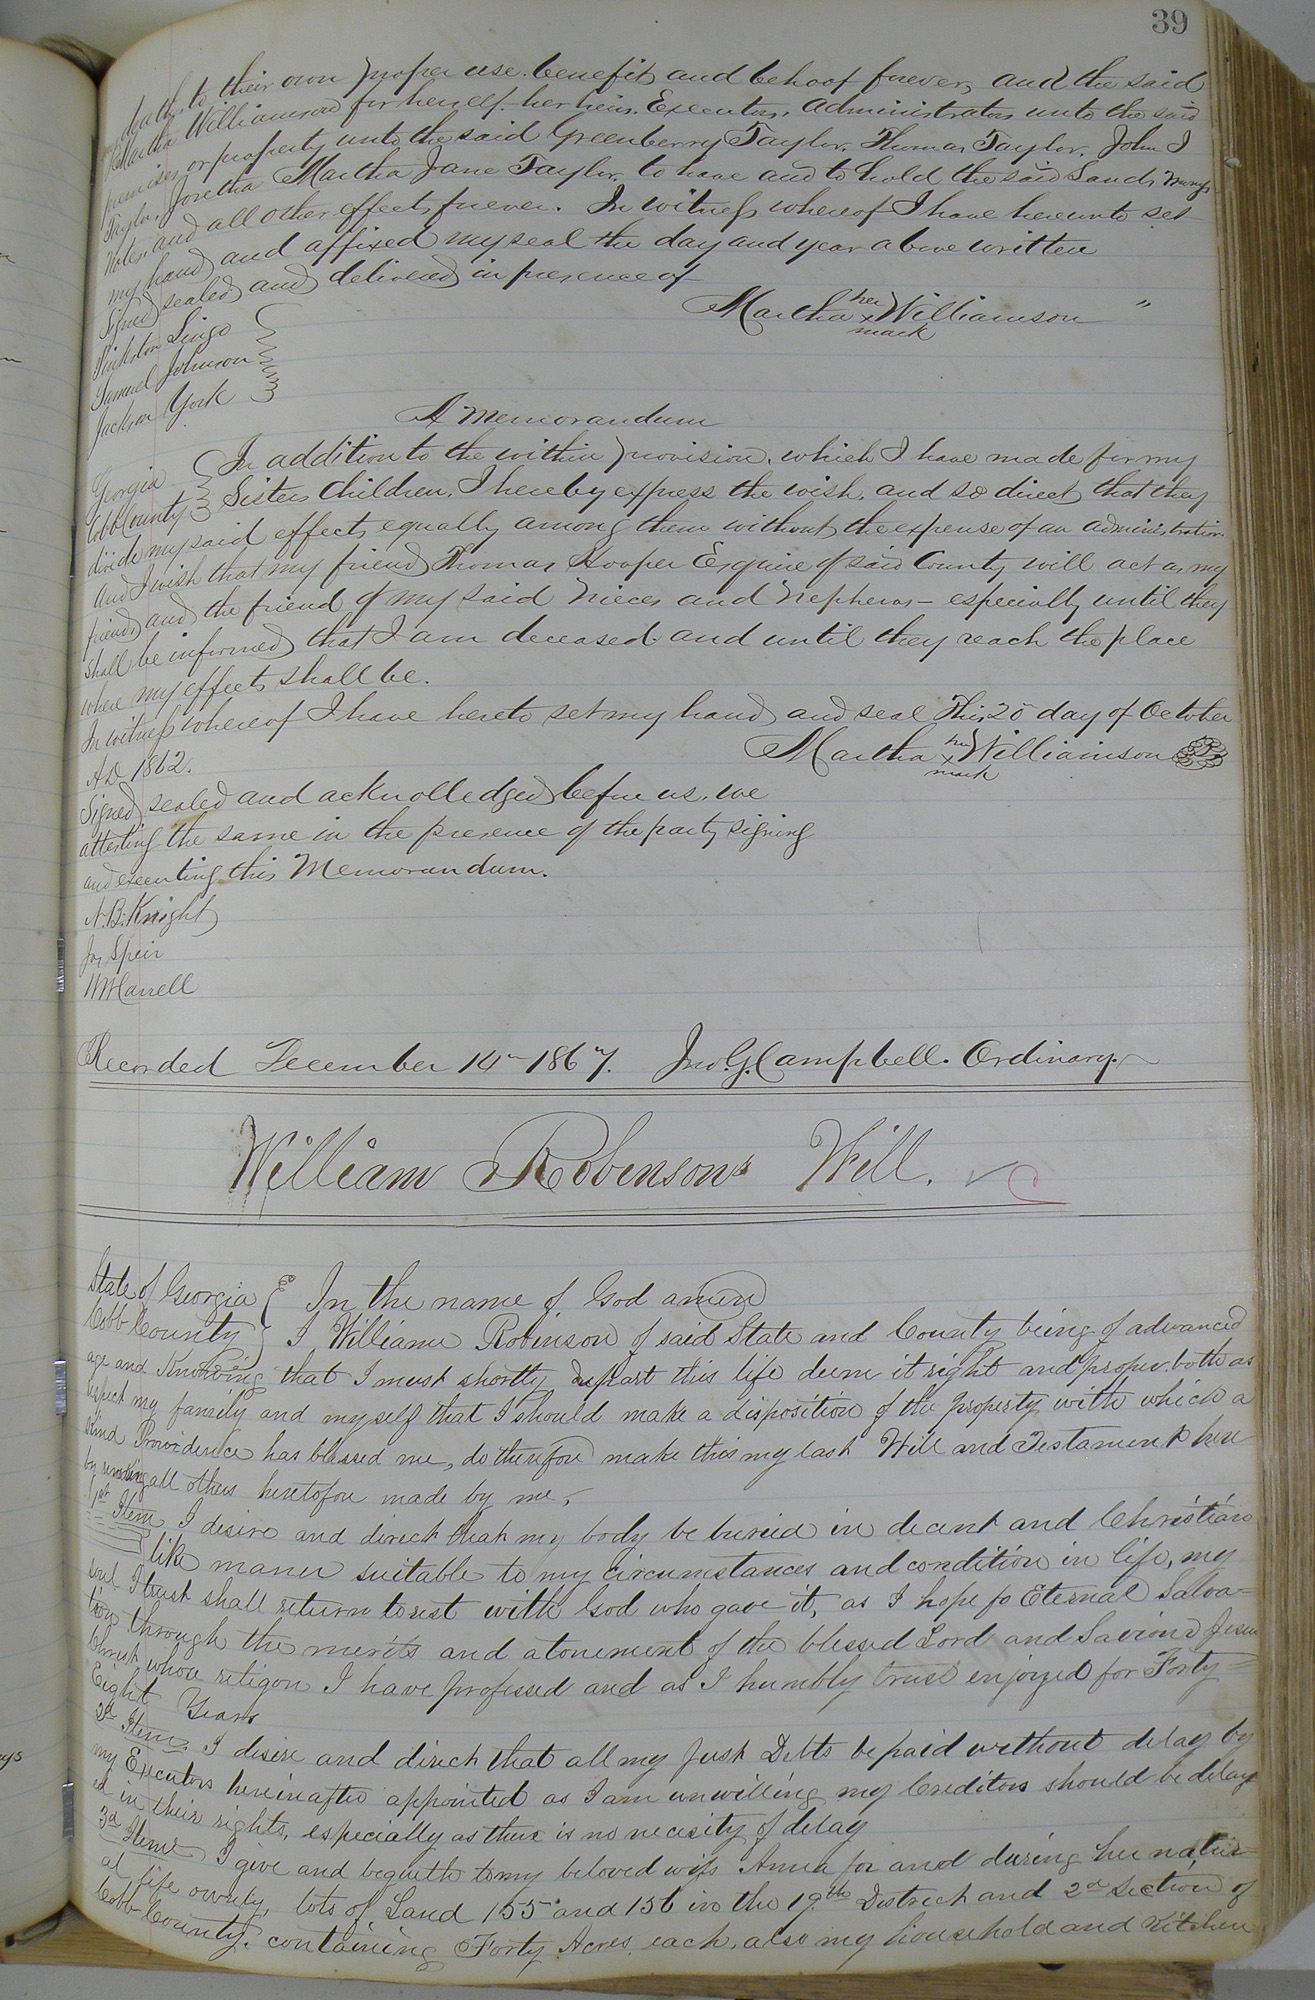 39
death, to their own proper use. benefit, and behoof forever, and the said
Martha Williamson for herself. her heirs. Executors, administrators unto the said
premises or property unto the said Greenberry Taylor. Thomas Taylor. John I
Taylor, Joretha Martha Jane Taylor, to have and to hold the said Lands, moneys
Notes. and all other effects, forever. In witness whereof I have hereunto set
my hand and affixed my seal the day and year above written
Signed sealed and delivered in presence of
Martha her x mark Williamson "
Pinkston Lingo
Samuel Johnson
Jackson York
A Memorandum
Georgia In addition to the within provision, which I have made for my
Cobb County Sisters Children, I hereby express the wish, and so direct, that they
divide my said effects equally among them without the expense of an administration
and I wish that my friend Thomas Hooper Esquire of said County will act as my
friend, and the friend of my said nieces and nephews - especially until they
shall be informed that I am deceased and until they reach the place
where my effects shall be.
In witness whereof I have hereto set my hand and seal This 25 day of October
AD 1862.
Martha her x mark Williamson
Signed sealed and acknolledged before us, we
attesting the same in the presence of the party signing
and executing this Memorandum.
N. B. Knight
Jas Speir
Recorded December 14 1867. Jno. G. Campbell. Ordinary.
William Robinsons Will.
State of Georgia In the name of God amen
Cobb County I William Robinson of said State and County being of advanced
age and Knowing that I must shortly depart this life deem it right and proper both as
respect my family and myself that I should make a disposition of the property with which a
kind Providence has blessed me, do therefore make this my last Will and Testament here
by revoking all others heretofore made by me,
1st Item I desire and direct that my body be buried in decent and Christian
like maner suitable to my circumstances and condition in life, my
soul I trust shall return to rest with God who gave it, as I hope fo Eternal Salva=
tion through the merits and atonement of the blessed Lord and Saviour Jesus
Christ whose religon I have professed and as I humbly trust enjoyed for Forty=
Eight Years
2d Item. I desire and direct that all my Just Debts be paid without delay by
my Executors hereinafter appointed as I am unwilling my Creditors should be delay
ed in their rights, especially as there is no necisity of delay
3d Item I give and bequeth to my beloved wife Anna for and during her natur-
al life lots of Land 155 and 156 in the 19th District and 2d Section of
Cobb County. containing Forty Acres each, also my household and Kitchen